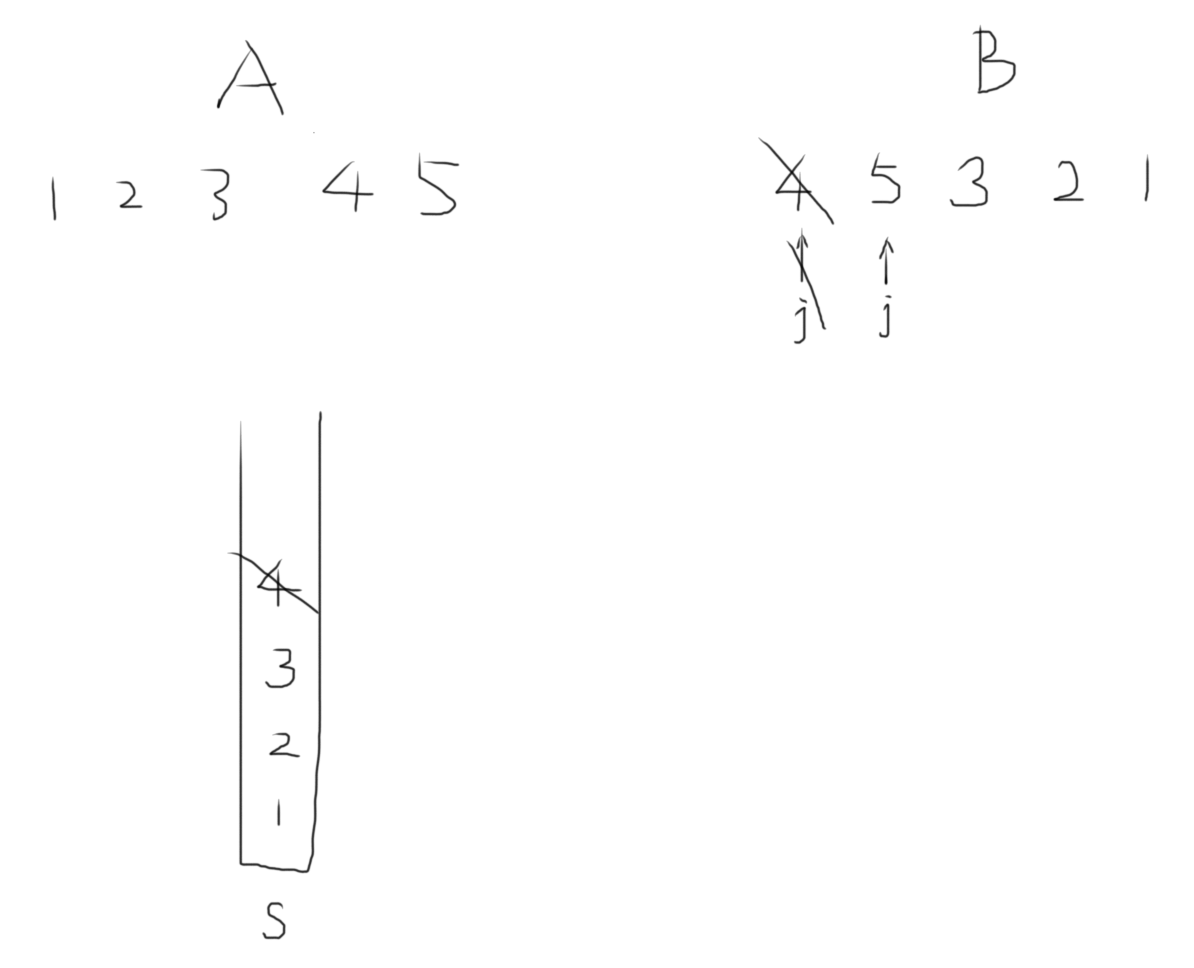 A B
1 2 3 4 5 4 5 3 2 1
j j
4
3
2
1
S